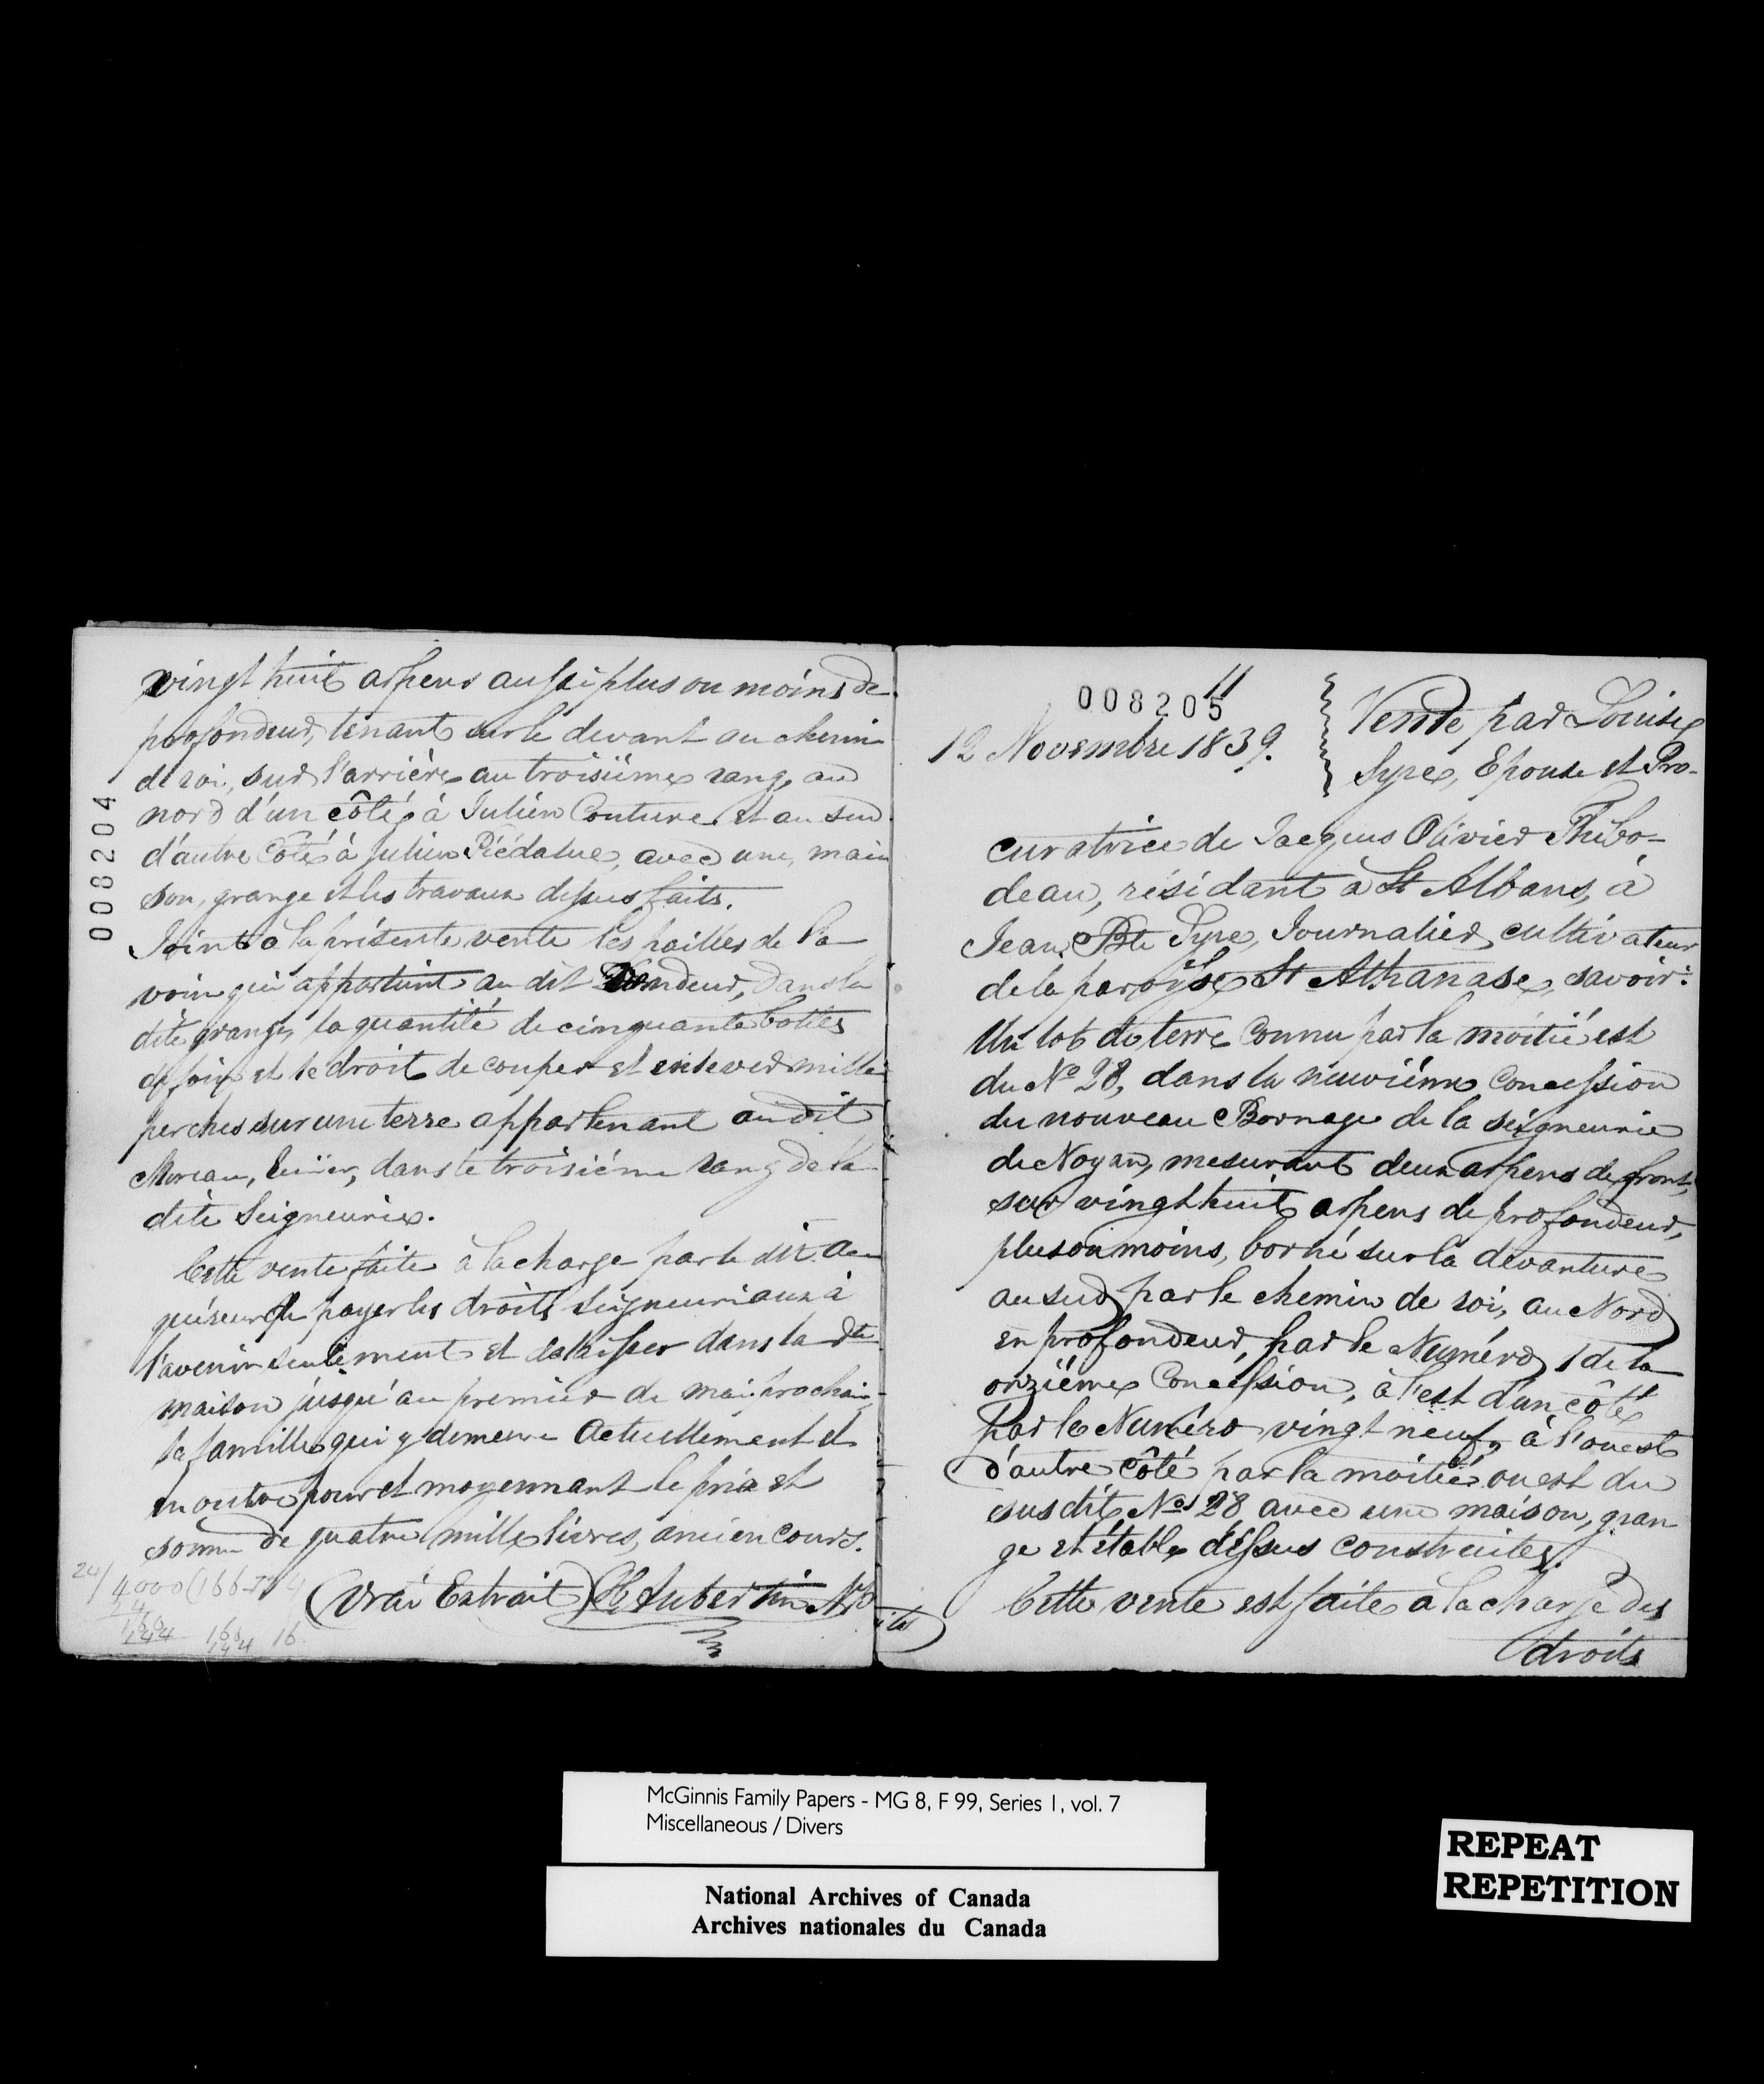 008204
vingt huit arpens aussi plus ou moins de
profondeur, tenant sur le devant au chemin
de roi, sur l'arrière au troisiéme rang, au
nord d'un côté, à Julien Couture et au sud
d'autre côté à Julien Piédalue, avec une mai
son, grange et les travaux dessus faits.
Joint à la présente vente les pailles de l'a
voine qui appartient au dit Vendeur, dans la
dite grange, la quantité de cinquante bottes
de foin et le droit de couper et enlever mille
perches sur une terre appartenant au dit
Moreau, dans le troisiéme rang de la
dite Seigneurie.
Cette vente faite à la charge par le dit Ac
quéreur de payer les droits seigneuriaux à
l'avenir seulement et de laisser dans la dte
maison jusqu'au premier de mai prochain,
la famille qui y demeure actuellement et
en outre pour et moyennant le prix et
somme de quatre mille livres, ancien cours.
(Vrai Extrait) Aubertin NP
24/4000(166
24
160
144 168 16
144
008205
11
12 Novembre 1839.
Vente par Louise
Syre, Epouse et Pro-
curatrice de Jacques Olivier Thibo-
deau, résidant à St Albans, à
Jean Bte Syre, Journalier cultivateur
de la paroisse St Athanase, savoir:
Un lot de terre connu par la moitié est
du No 28, dans la neuviéme Concession
du nouveau Bornage de la seigneurie
de Noyan, mesurant deux arpens de front,
sur vingt huit arpens de profondeur,
plus ou moins, borné sur la devanture
au sud par le chemin de roi, au Nord
en profondeur, par le Numéro 1 de la
onziéme Concession, à l'est d'un côté
par le Numéro vingt neuf, à l'ouest
d'autre côté par la moitié ouest du
susdit No 28 avec une maison, gran
ge et étable dessus construites.
Cette vente est faite à la charge des
droits
McGinnis Family Papers - MG 8, F 99, Series 1, vol. 7
Miscellaneous / Divers
National Archives of Canada
Archives nationales du Canada
REPEAT
REPETITION